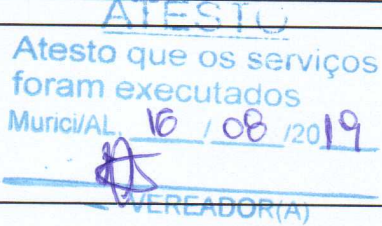 ATESTO
Atesto que os serviços
foram executados
Murici/AL, 16 / 08 /2019
VEREADOR(A)